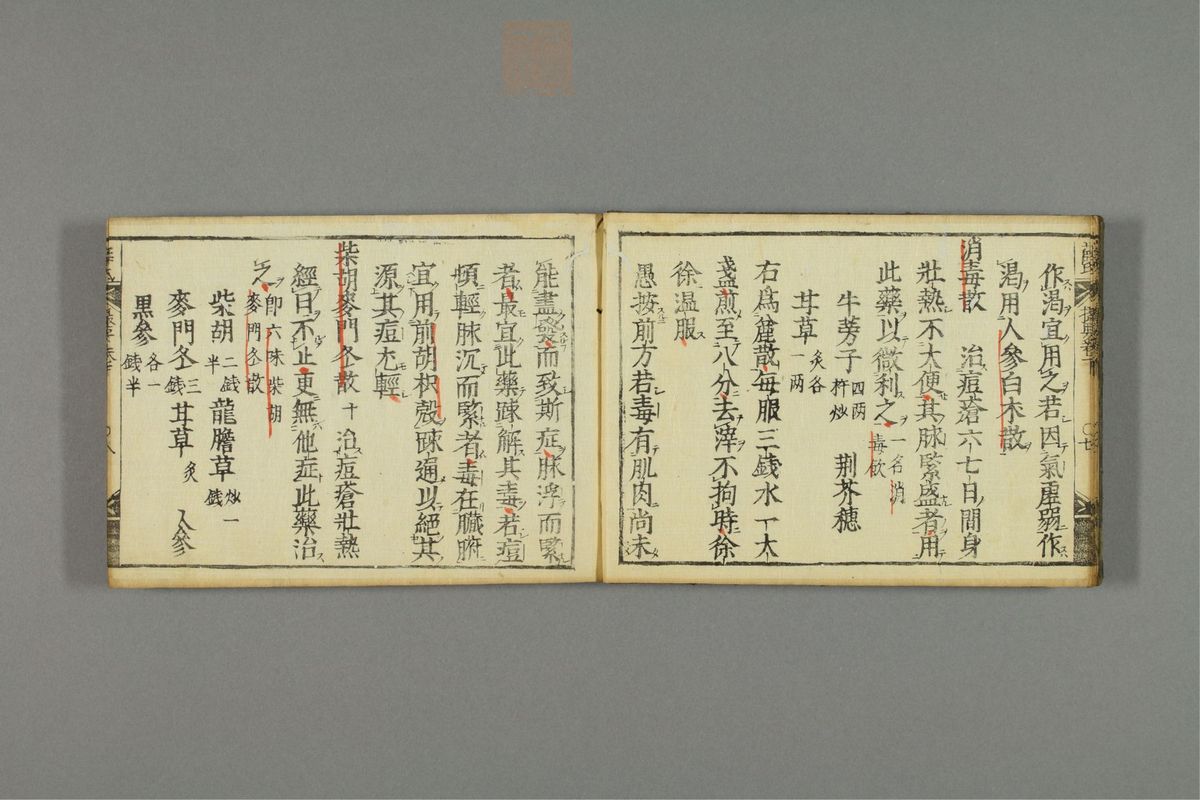 作渴宜用之若因氣虛弱作
渴用人參白朮散
消毒散 治痘瘡六七日間身
壯熱不大便其脉緊盛者用
此藥以微利之一名消毒飲
牛蒡子四两杵炒 荆芥穗
甘草一两炙各
右爲麄散每服三錢水一大
盞煎至八分去滓不拘時徐
徐温服
愚按前方若毒有肌肉尚未
能盡發而致斯症脉浮而緊
者最宜此藥踈解其毒若痘
頓輕脉沉而緊者毒在臟腑
宜用前胡枳殼踈通以絕其
源其痘尤輕
柴胡麥門冬散 十 治痘瘡壯熱
經日不止更無他症此藥治
之即六味柴胡麥門冬散
柴胡二錢半 龍膽草炒一錢
麥門冬三錢 甘草炙 人參
黒參各一錢半